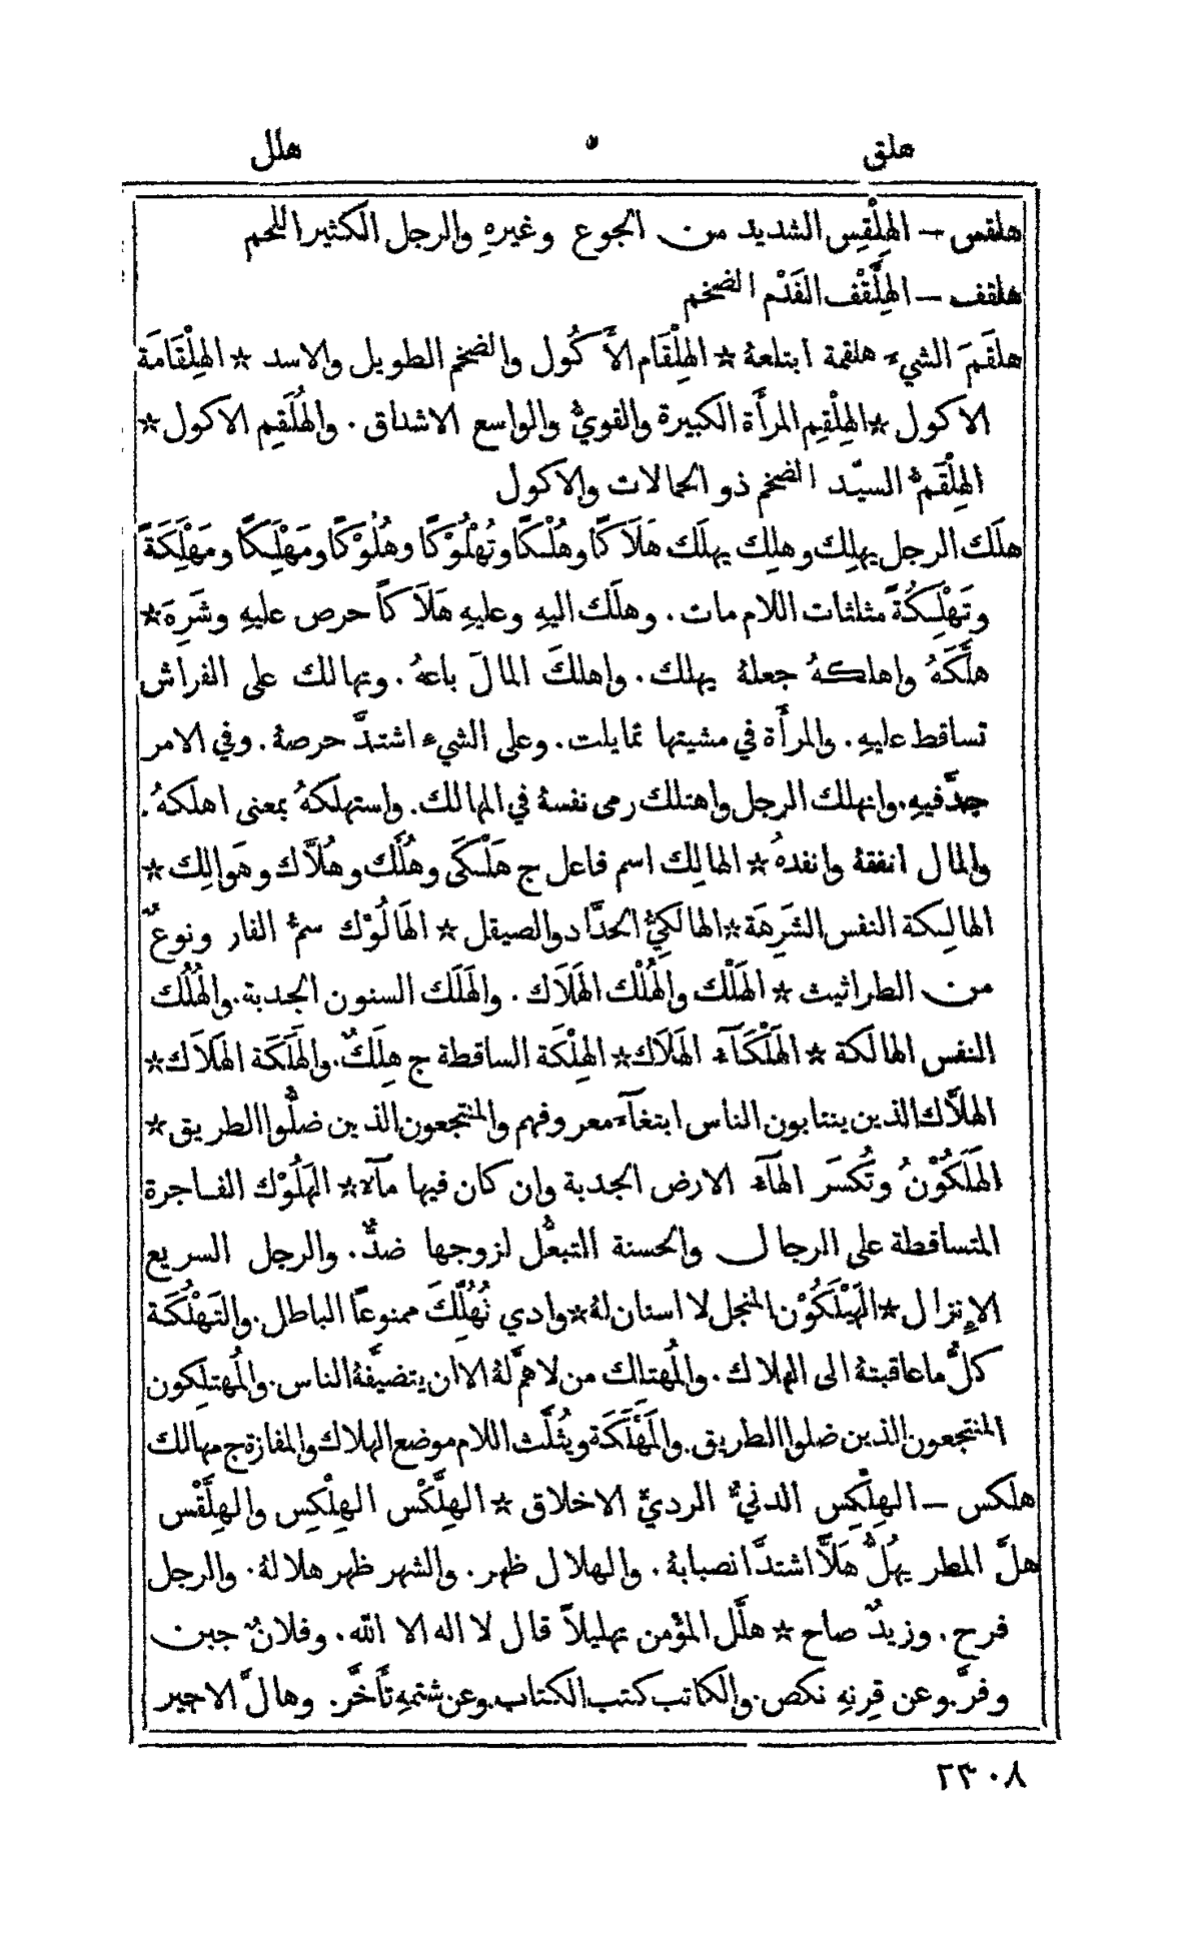 هلق ه هلل
هلقس – الهِلْقِس الشديد من الجوع وغيرهِ والرجل الكثير اللحم
هلقف – الهِلَّقْف الفَدْم الضخم
هلقَمَ الشيء هلقمة ابتلعهُ * الهِلْقَام الأَكُول والضخم الطويل والاسد * الهِلْقَامَة
الاكول * الهِلْقِم المرأَة الكبيرة والقويُّ والواسع الاشداق . والهُلَقِم الاكول *
الهِلْقَمُّ السيّد الضخم ذو الحمالات والاكول
هلَك الرجل يهلِك وهلِك يهلَك هَلَاكًا وهُلْكًا وتُهْلُوْكًا وهُلُوْكًا ومَهْلِكًا ومَهْلِكَةً
وتَهْلِكُةً مثلثات اللام مات . وهلَك اليهِ وعليهِ هَلَاكاً حرص عليهِ وشَرِهَ *
هلَّكَهُ واهلكهُ جعلهُ يهلك . واهلكَ المالَ باعهُ . وتهالك على الفراش
تساقط عليهِ . والمرأَة في مشيتها تمايلت . وعلى الشيء اشتدَّ حرصهُ . وفي الامر
جدَّ فيهِ . وانهلك الرجل واهتلك رمى نفسهُ في المهالك . واستهلكهُ بمعنى اهلكهُ .
والمال انفقهُ وانفدهُ * الهالِك اسم فاعل ج هَلْكَى وهُلَّك وهُلاَّك وهَوالِك *
الهالِكة النفس الشَرِهَة * الهالكيُّ الحدَّاد والصيقل * الهَالُوْك سمُّ الفار ونوعٌ
من الطراثيث * الهَلْك والهُلْك الهَلَاك . والهَلَك السنون الجدبة . والهُلُك
النفس الهالكة * الهَلْكَآء الهَلَاك * الهِلْكَة الساقطة ج هِلَكٌ . والهَلَكَة الهَلَاك *
الهلاَّك الذين ينتابون الناس ابتغآء معروفهم والمنتجعون الذين ضلُّوا الطريق *
الهَلَكُوْنُ وتُكسَر الهآء الارض الجدبة وان كان فيها مآء * الهَلُوْك الفاجرة
المتساقطة على الرجال والحسنة التبعُّل لزوجها ضدٌّ . والرجل السريع
الإنزال * الهَيْلَكُوْن المنجل لا اسنان لهُ * وادي تُهُلِّكَ ممنوعًا الباطل . والتَهْلُكَة
كلُّ ما عاقبتهُ الى الهلاك . والمُهتلك من لا هَمَّ لهُ الا ان يتضيَّفهُ الناس . والمُهتلِكون
المنتجعون الذين ضلوا الطريق . والمَهْلَكَة ويثُلَّث اللام موضع الهلاك والمفازة ج مهالك
هلكس – الهِلْكِس الدنيُّ الرديُّ الاخلاق * الهِلَّكْس الهِلْكِس والهِلَّقْس
هلَّ المطر يهُلُّ هَلاًّ اشتدَّ انصبابهُ . والهلال ظهر . والشهر ظهر هلالهُ . والرجل
فرح . وزيدٌ صاح * هلَّل المؤمن تهليلاً قال لا اله الا الله . وفلانٌ جبن
وفرَّ . وعن قِرنِهِ نكص . والكاتب كتب الكتاب . وعن شتمهِ تأَخَّر . وهالَّ الاجير
٢٣٠٨